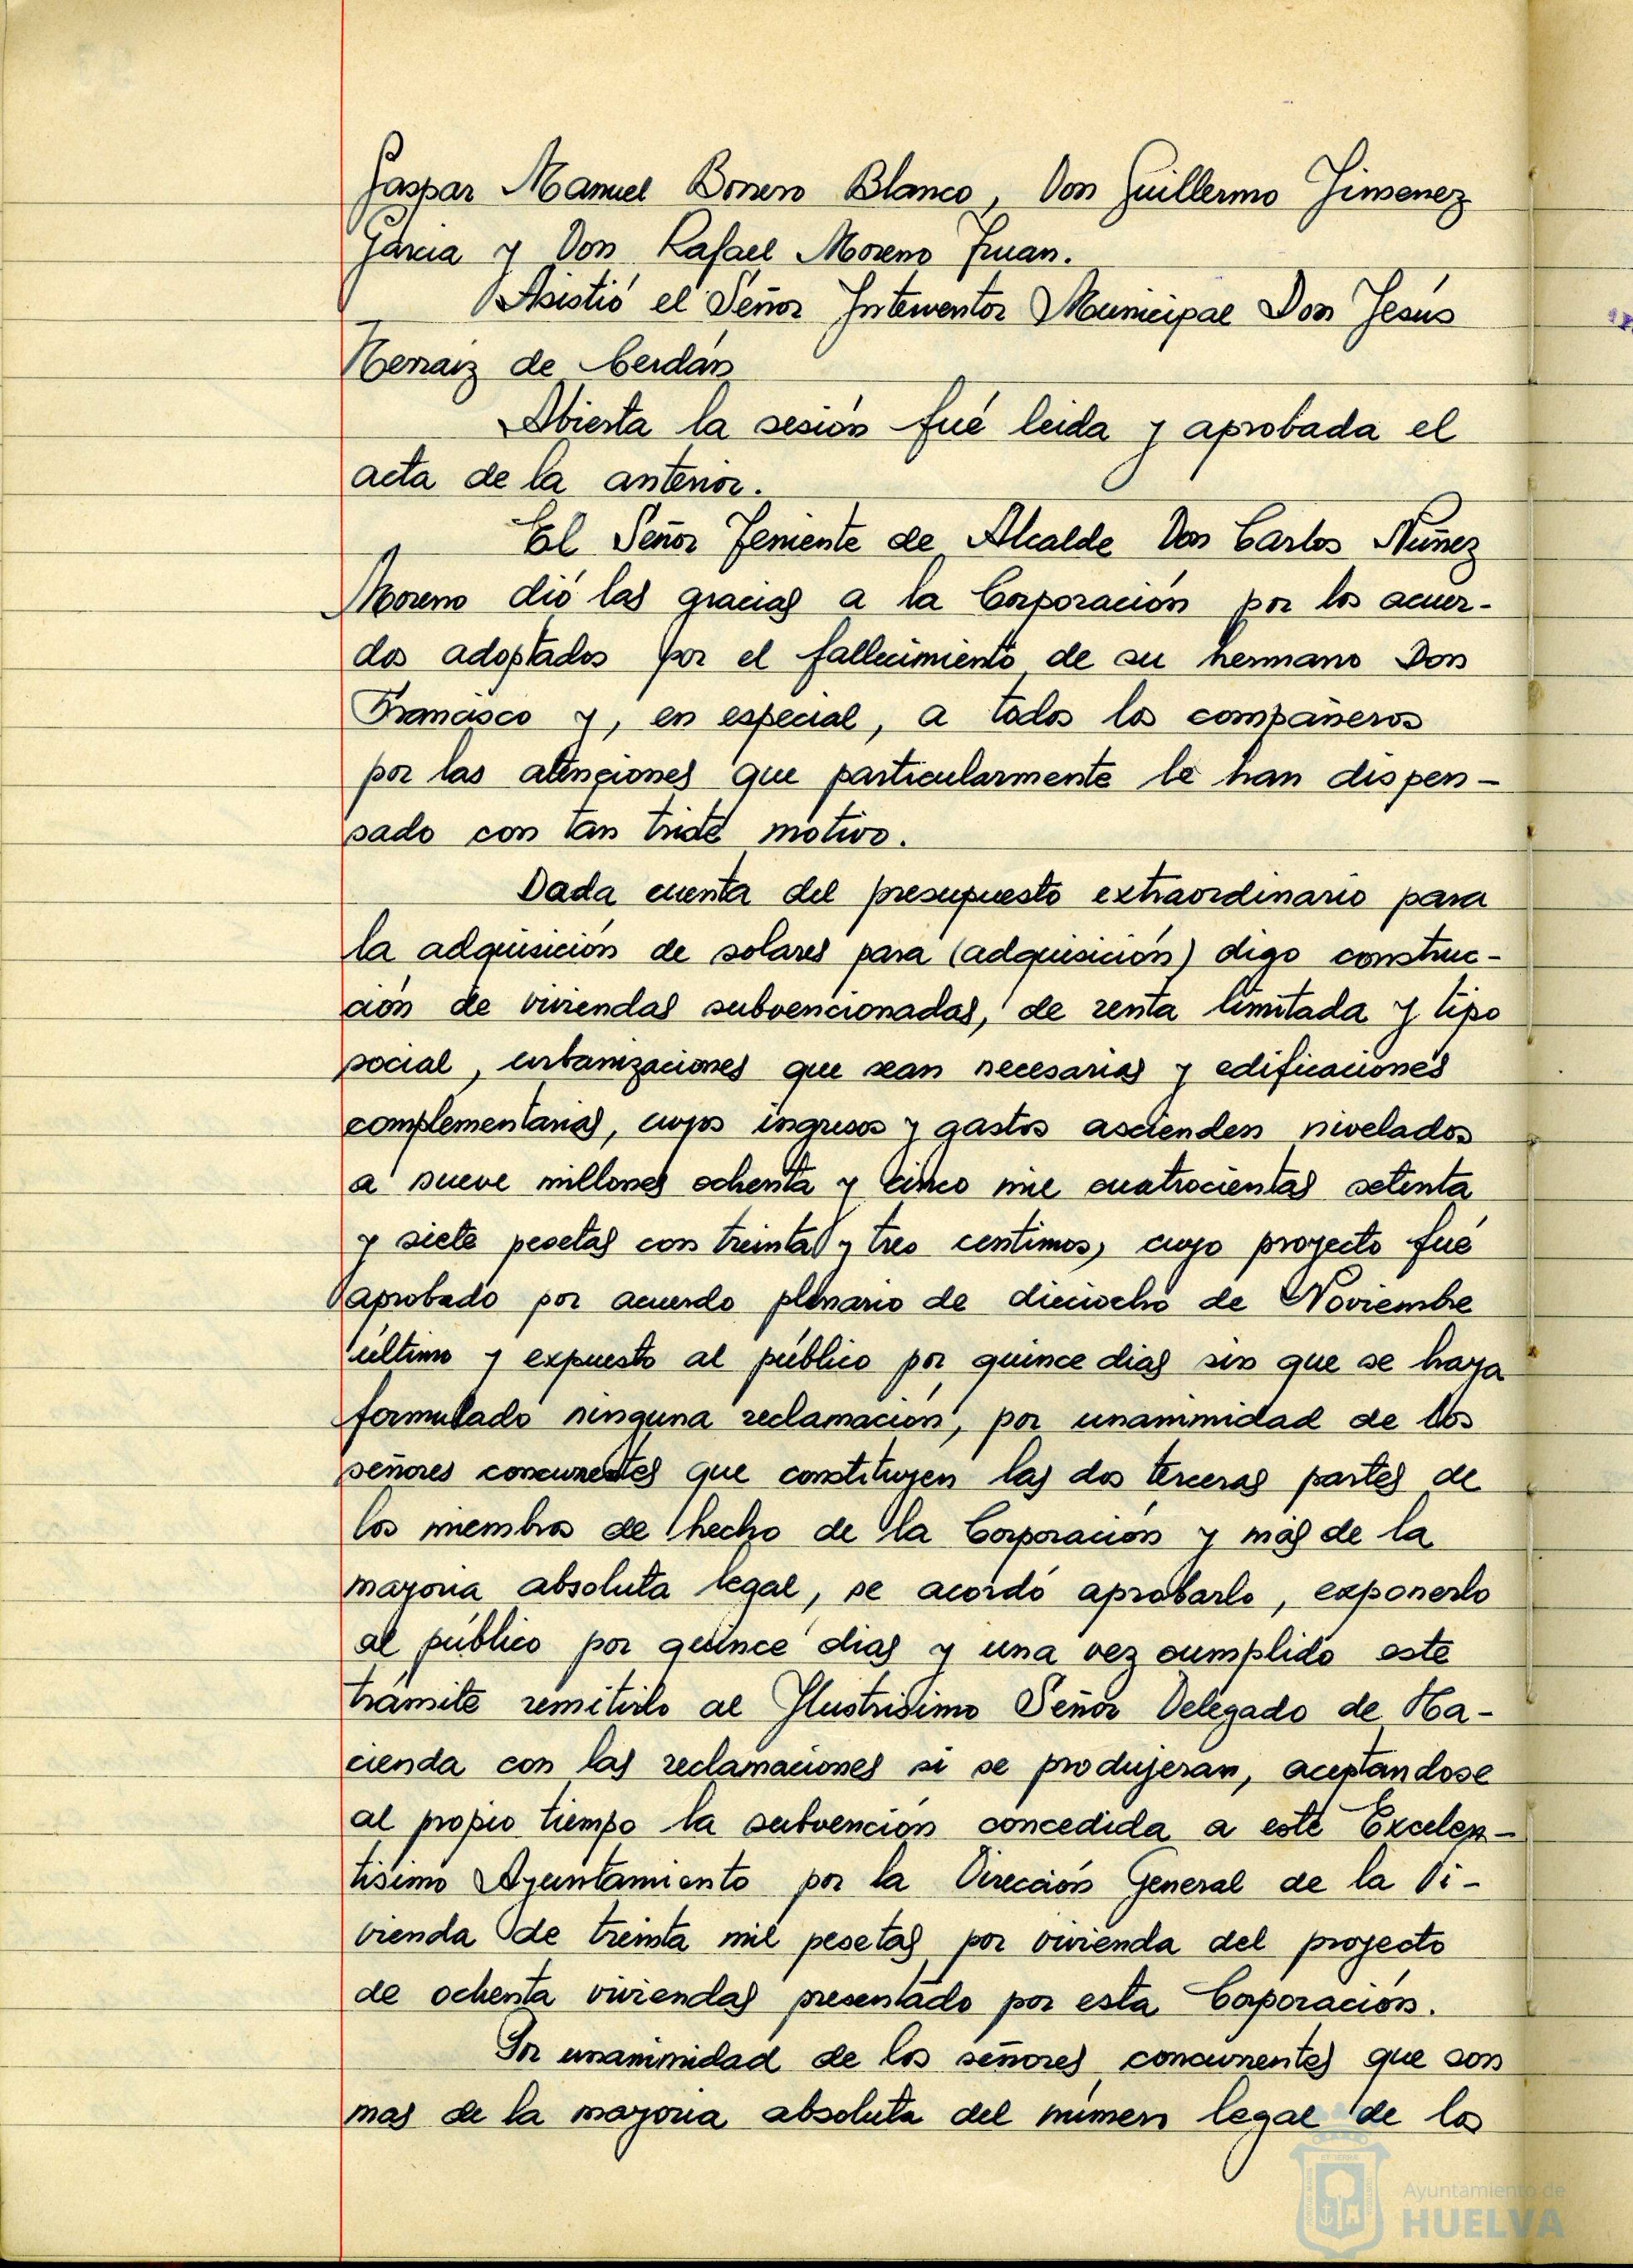 Gaspar Manuel Bonero Blanco, Don Guillermo Jimenez
Garcia y Don Rafael Moreno Juan.
Asistió el Señor Interventor Municipal Don Jesús
Hernaiz de Cerdán
Abierta la sesión fué leida y aprobada el
acta de la anterior.
El Señor Teniente de Alcalde Don Carlos Núñez
Moreno dió las gracias a la Corporación por los acuer-
dos adoptados por el fallecimiento de su hermano Don
Francisco y, en especial, a todos los compañeros
por las atenciones que particularmente le han dispen-
sado con tan triste motivo.
Dada cuenta del presupuesto extraordinario para
la adquisición de solares para (adquisición) digo construc-
ción de viviendas subvencionadas, de renta limitada y tipo
social, urbanizaciones que sean necesarias y edificaciones
complementarias, cuyos ingresos y gastos ascienden nivelados
a nueve millones ochenta y cinco mil cuatrocientas setenta
y siete pesetas con treinta y tres centimos, cuyo proyecto fué
aprobado por acuerdo plenario de dieciocho de Noviembre
último y expuesto al público por quince dias sin que se haya
formulado ninguna reclamación, por unanimidad de los
señores concurrentes que constituyen las dos terceras partes de
los miembros de hecho de la Corporación y más de la
mayoria absoluta legal, se acordó aprobarlo, exponerlo
al público por quince dias y una vez cumplido este
trámite remitirlo al Ilustrisimo Señor Delegado de Ha-
cienda con las reclamaciones si se produjeran, aceptandose
al propio tiempo la subvención concedida a este Excelen-
tisimo Ayuntamiento por la Dirección General de la Vi-
vienda de treinta mil pesetas por vivienda del proyecto
de ochenta viviendas presentado por esta Corporación.
Por unanimidad de los señores concurrentes que son
mas de la mayoria absoluta del número legal de los
Ayuntamiento de
HUELVA